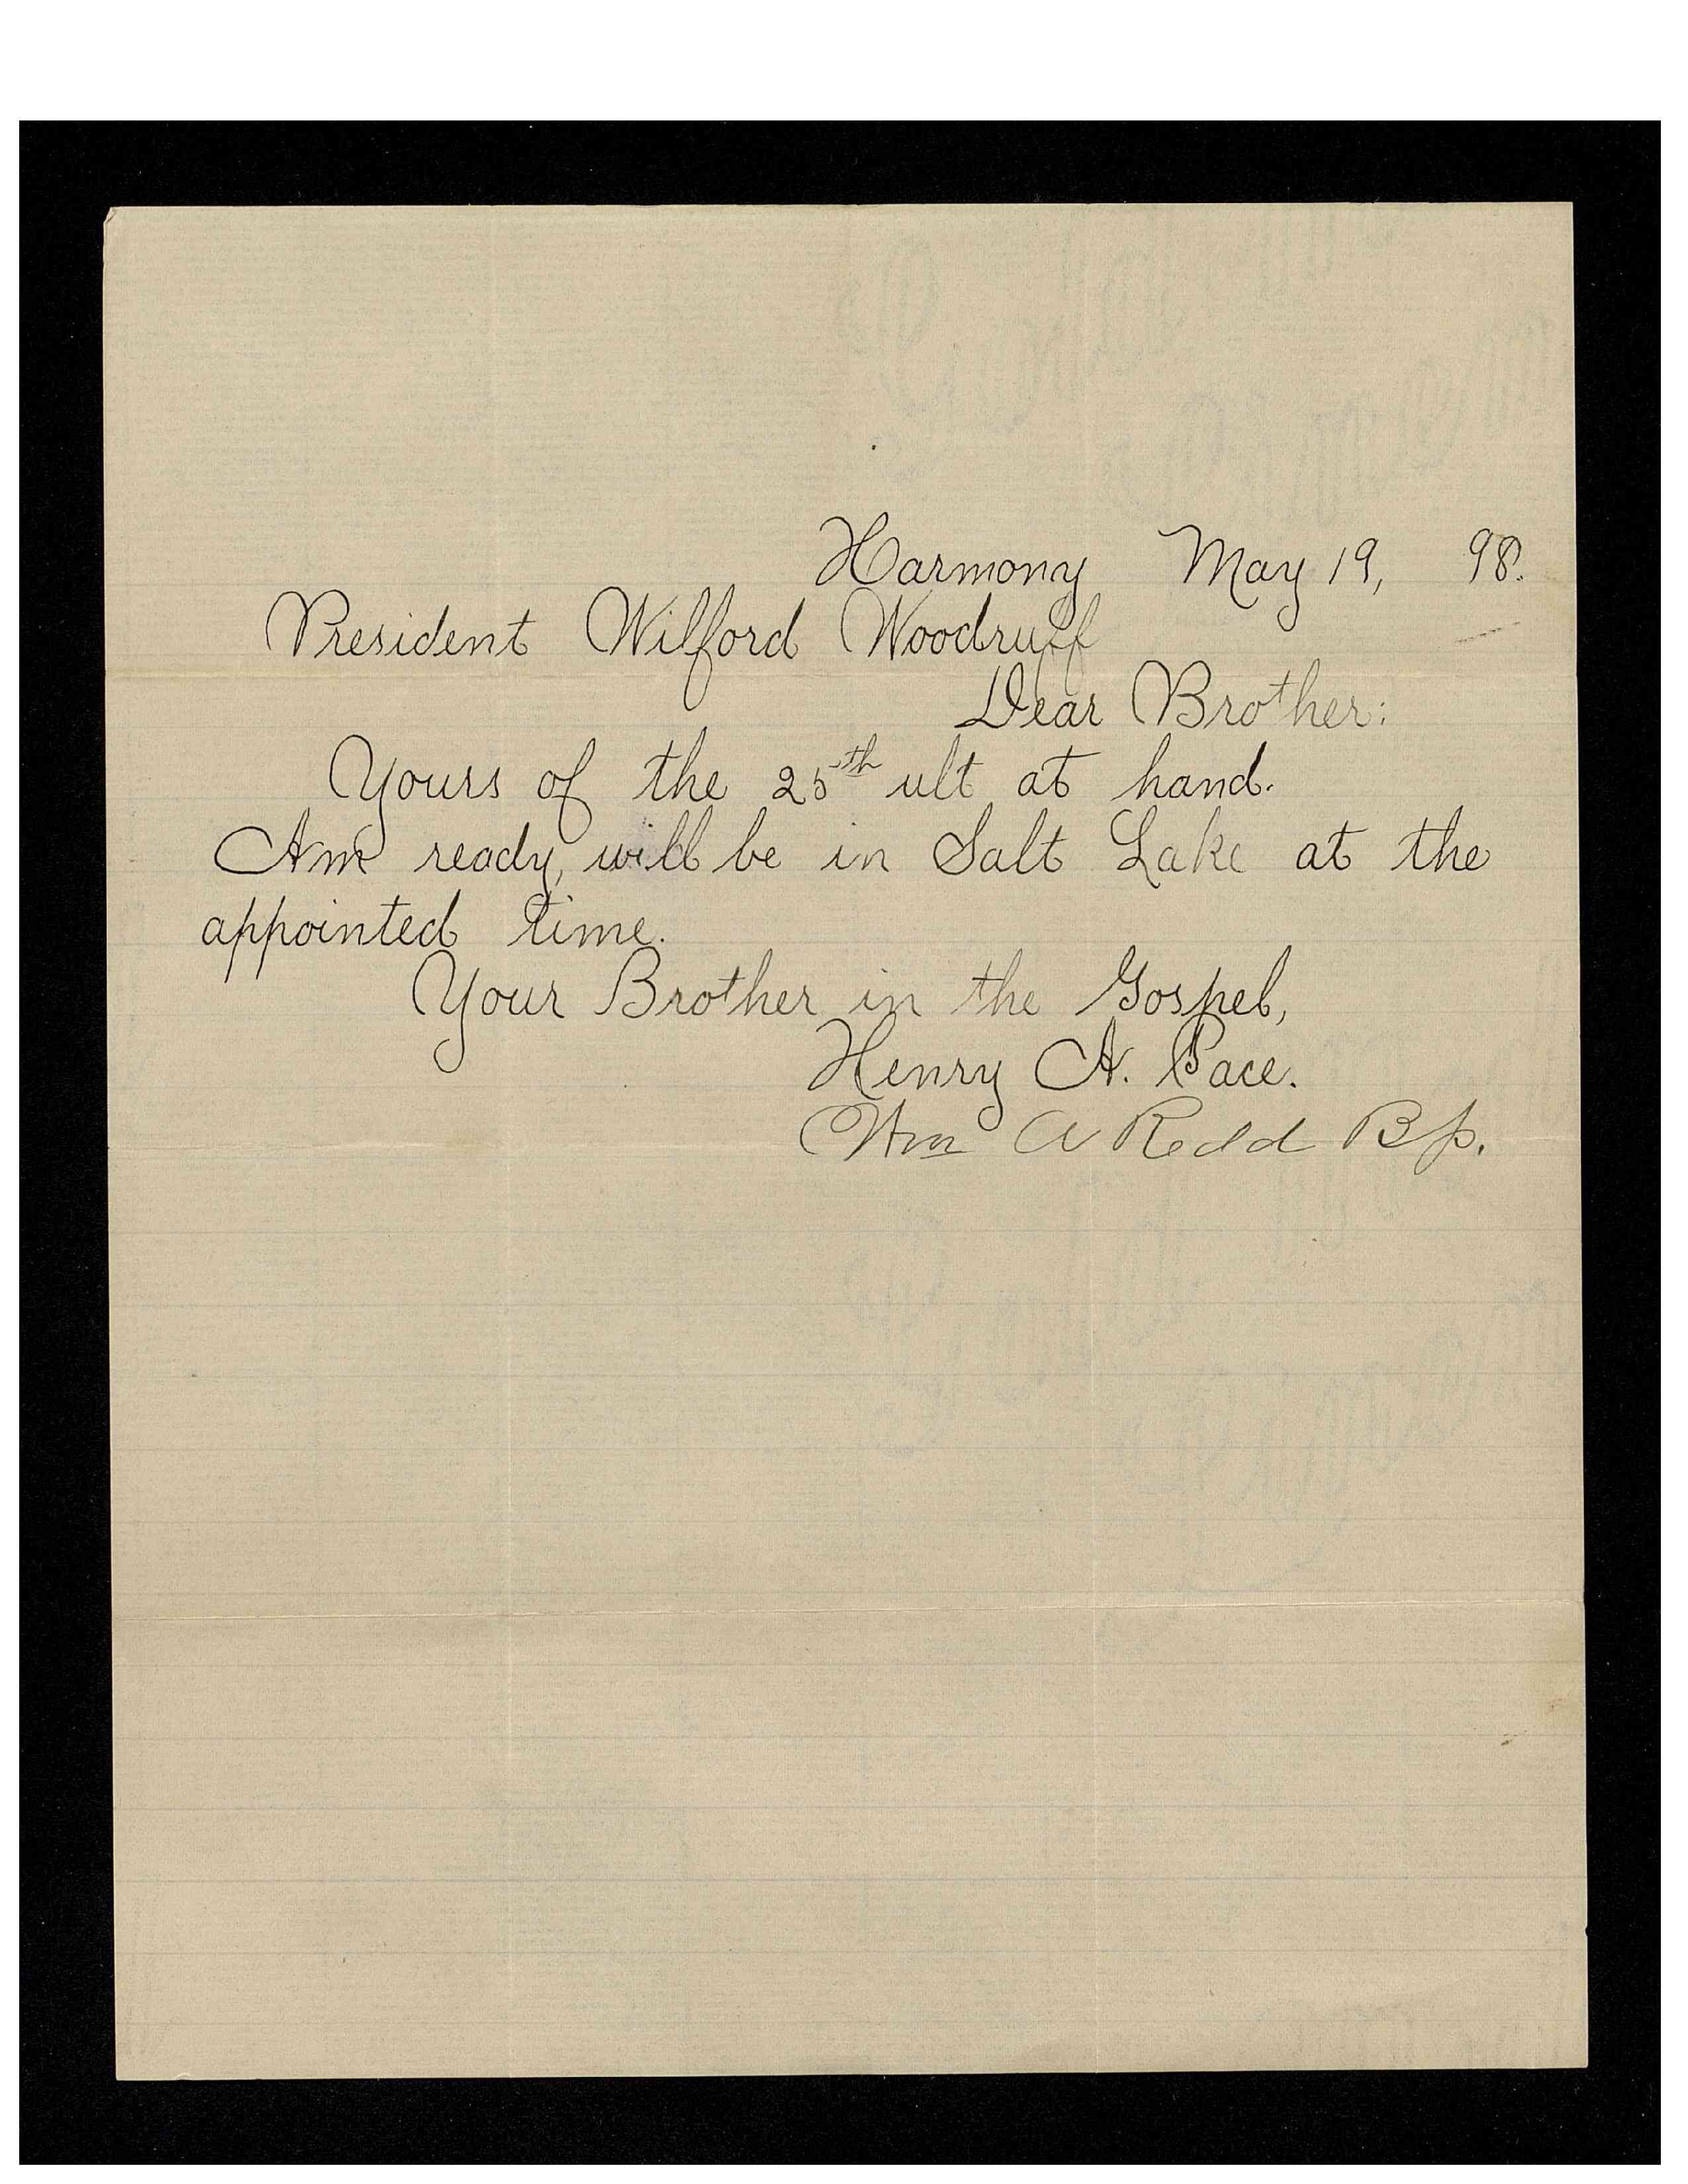 Harmony May 19, 98.
President Wilford Woodruff
Dear Brother:
Yours of the 25th ult at hand.
Am ready, will be in Salt Lake at the
appointed time.
Your Brother in the Gospel,
Henry A. Pace.
Wm A Redd Bp.